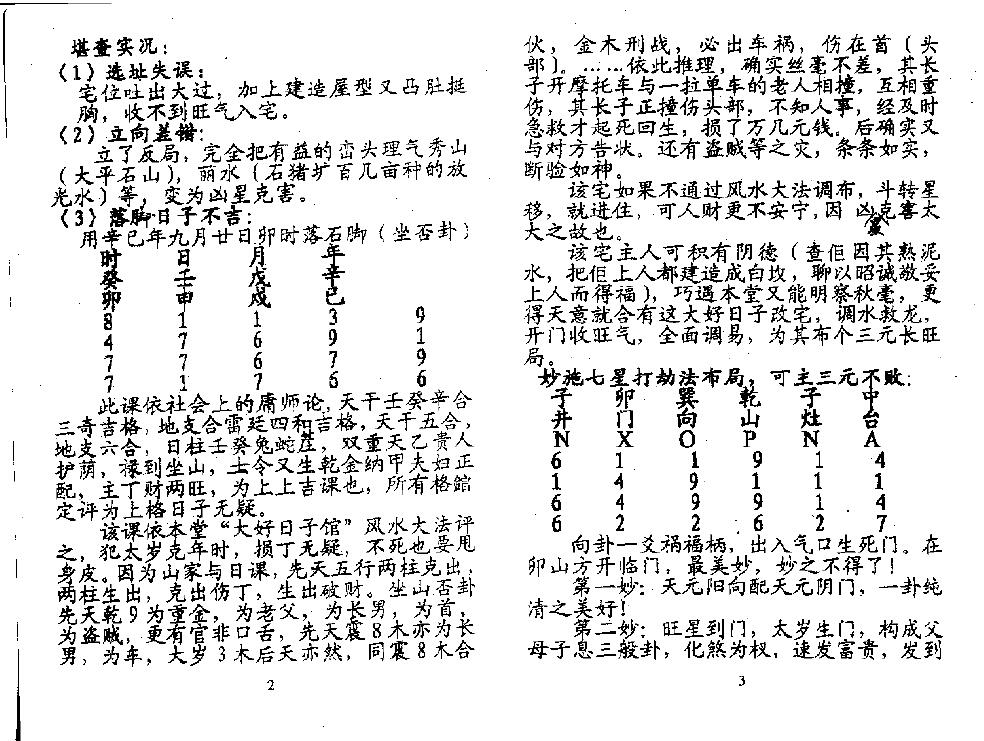 堪查实况：
（1）选址失误：
宅位吐出大过，加上建造屋型又凸肚挺
胸，收不到旺气入宅。
（2）立向差错：
立了反局，完全把有益的峦头理气秀山
（大平石山），丽水（石猪圹百几亩种的放
光水）等，变为凶星克害。
（3）落脚日子不吉：
用辛巳年九月廿日卯时落石脚（坐否卦）
时 日 月 年
癸 壬 戊 辛
卯 申 戌 巳
8 1 1 3 9
4 7 6 9 1
7 7 6 7 9
7 1 7 6 6
此课依社会上的庸师论，天干壬癸辛合
三奇吉格，地支合雷廷四和吉格，天干五合，
地支六合，日柱壬癸兔蛇庄，双重天乙贵人
护荫，禄到坐山，士令又生乾金纳甲夫妇正
配，主丁财两旺，为上上吉课也，所有格館
定评为上格日子无疑。
该课依本堂“大好日子馆”风水大法评
之，犯太岁克年时，损丁无疑，不死也要甩
身皮。因为山家与日课，先天五行两柱克出，
两柱生出，克出伤丁，生出破财。坐山否卦
先天乾9为重金，为老父，为长男，为首，
为盗贼，更有官非口舌，先天震8木亦为长
男，为车，大岁3木后天亦然，同震8木合
2
伙，金木刑战，必出车祸，伤在首（头
部）。……依此推理，确实丝毫不差，其长
子开摩托车与一拉单车的老人相撞，互相重
伤，其长子正撞伤头部，不知人事，经及时
急救才起死回生，损了万几元钱。后确实又
与对方告状。还有盗贼等之灾，条条如实，
断验如神。
该宅如果不通过风水大法调布，斗转星
移，就进住，可人财更不安宁，因凶克害太
大之故也。
该宅主人可积有阴德（查佢因其熟泥
水，把佢上人都建造成白坟，聊以昭诚敬妥
上人而得福），巧遇本堂又能明察秋毫，更
得天意就合有这大好日子改宅，调水救龙，
开门收旺气，全面调易，为其布个三元长旺
局。
妙施七星打劫法布局，可主三元不败：
子 卯 巽 乾 子 中
井 门 向 山 灶 台
N X O P N A
6 1 1 9 1 4
1 4 9 9 1 1
6 4 9 1 1 4
6 2 2 6 2 7
向卦一爻祸福柄，出入气口生死门。在
卯山方开临门，最美妙，妙之不得了！
第一妙：天元阳向配天元阴门，一卦纯
清之美好！
第二妙：旺星到门，太岁生门，构成父
母子息三般卦，化煞为权，速发富贵，发到
3